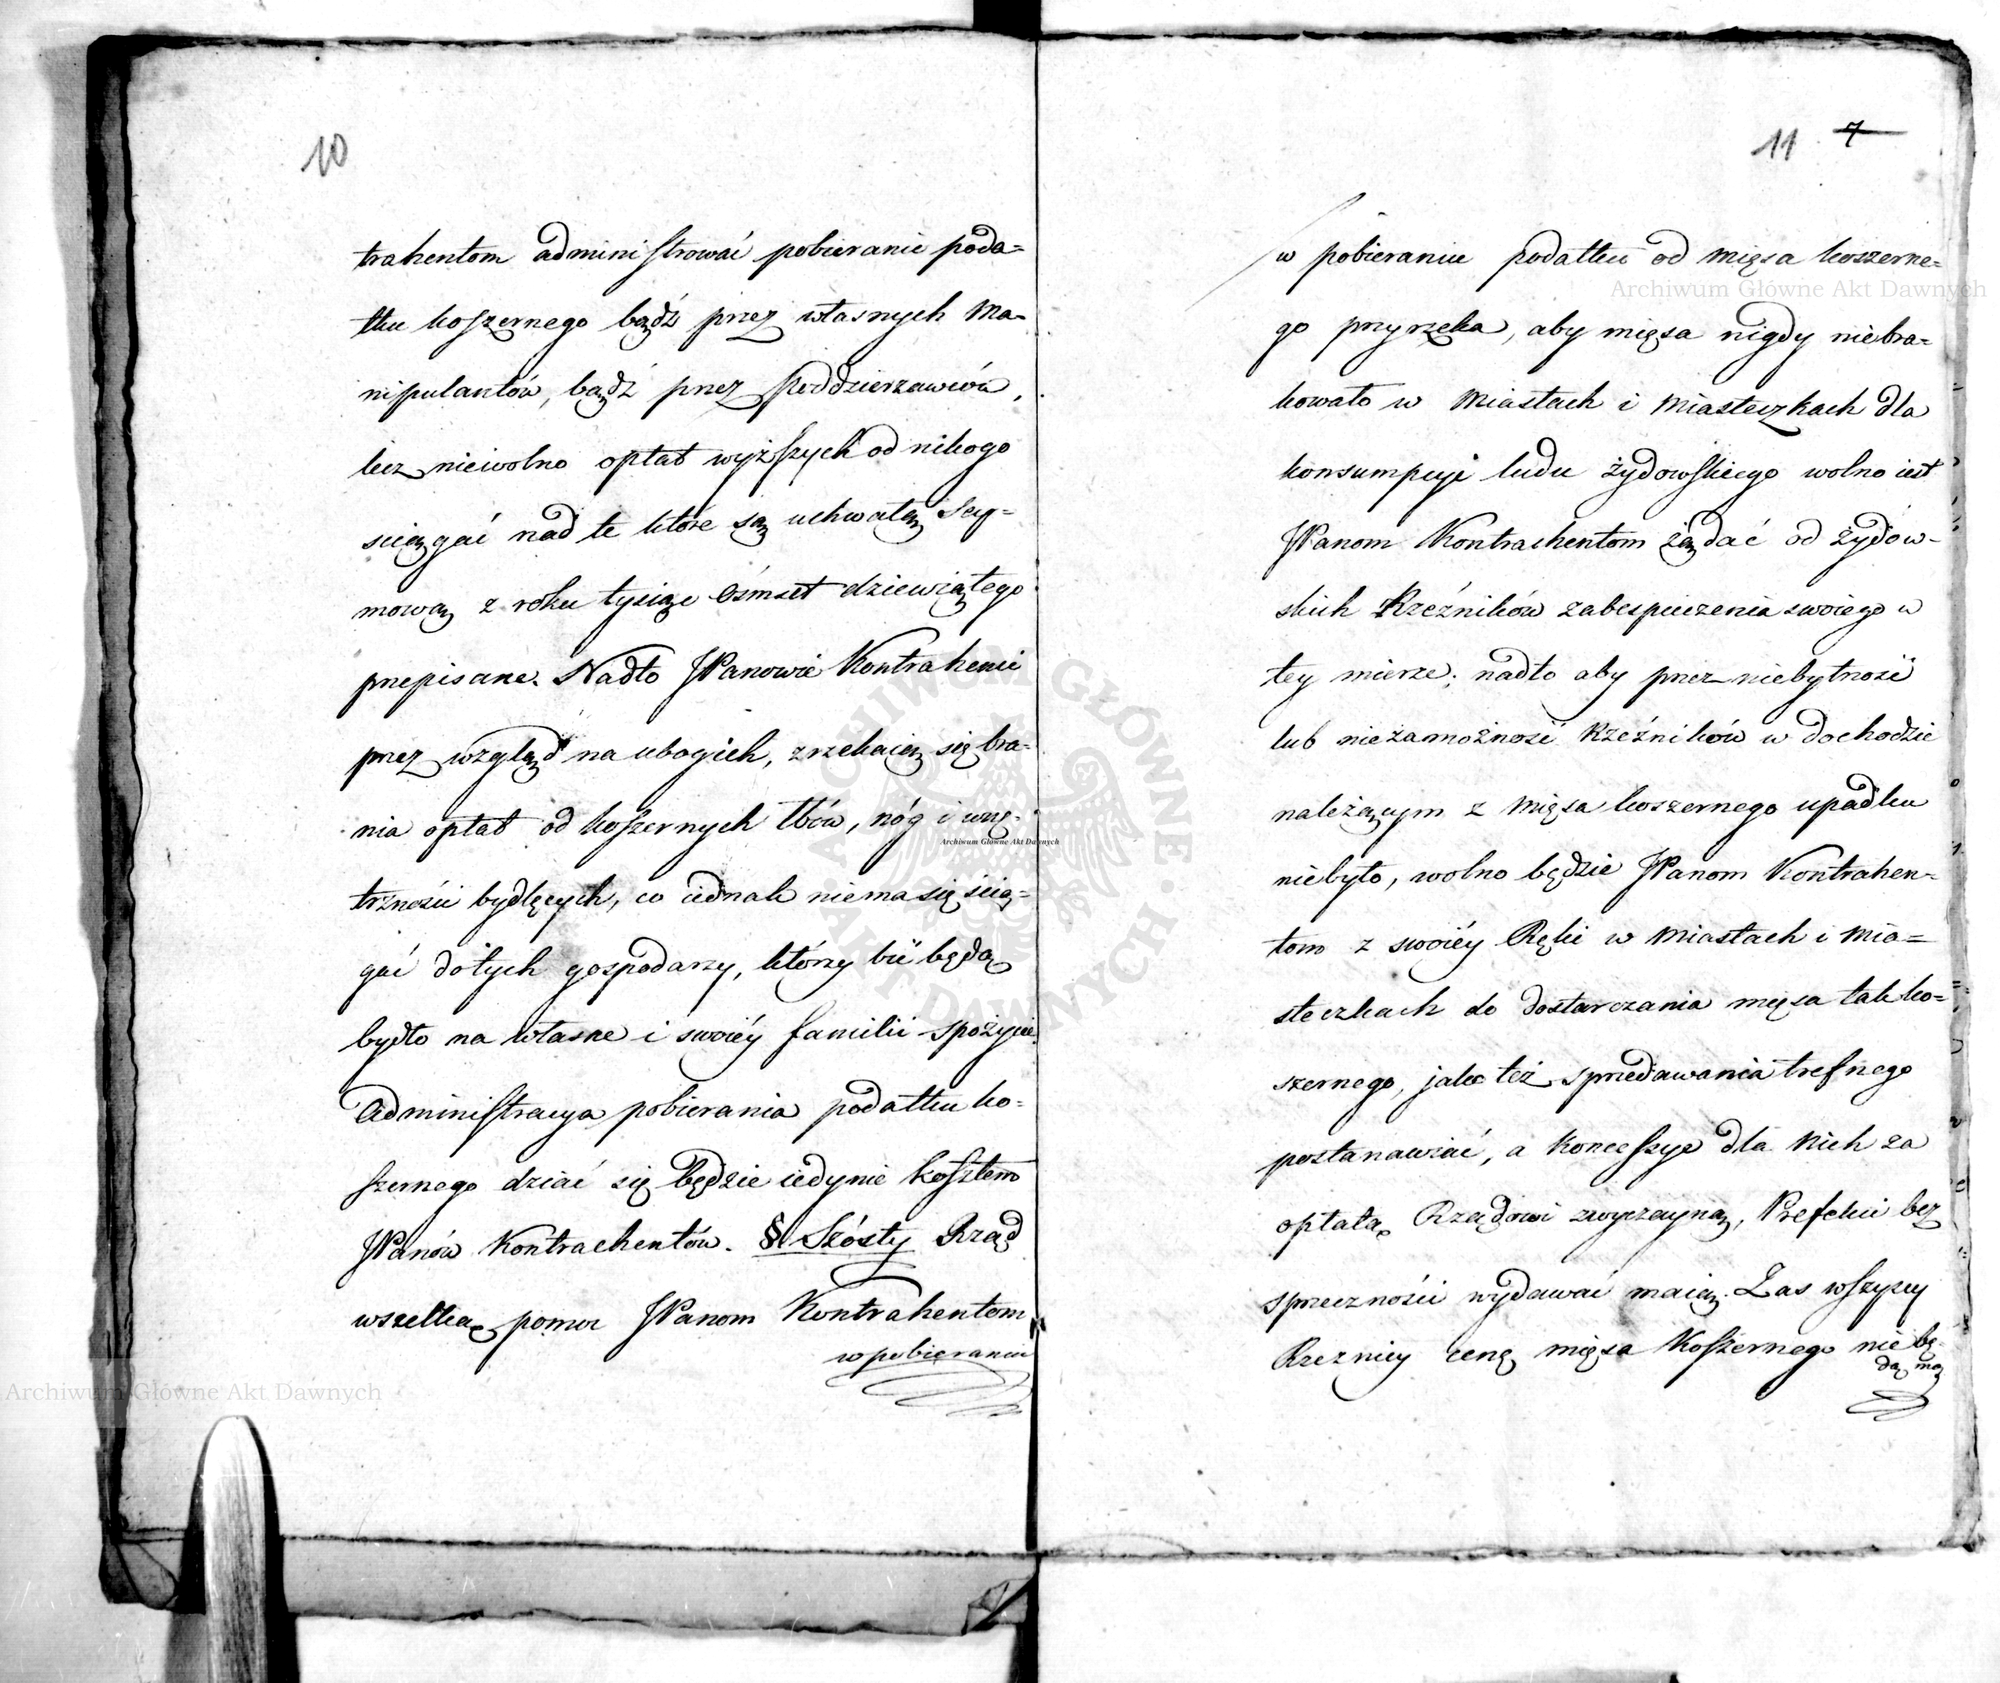 10
trahentom administrować pobieranie poda=
tku koszernego bądź przez własnych Ma=
nipulantów, bądź przez Poddzierzawców,
lecz niewolno opłat wyższych od nikogo
sciągać nad te które są uchwałą Sey=
mową z roku tysiąc ośmset dziewiątego
przepisane. Nadto JPanowie Kontrahenci
przez wzgląd na ubogich, zrzekaią się bra=
nia opłat od koszernych łbów, nóg i wnę=
trzności bydlęcych, co iednak niema się ścią=
gać do tych gospodarzy, którzy bić będą
bydło na własne i swoiéy familii spożycie.
Administracya pobierania podatku ko=
szernego dziać się będzie iedynie kosztem
JPanów Kontrachentów. § Szósty Rząd
wszelką pomoc JPanom Kontrahentom
w pobieraniu
11 7
w pobieraniu podatku od mięsa koszerne=
go przyrzeka, aby mięsa nigdy niebra=
kowało w Miastach i Miasteczkach dla
konsumpcyi ludu żydowskiego wolno iest
JPanom Kontrachentom żądać od żydow=
skich Rzeźników zabespieczenia swoiego w
tey mierze; nadto aby przez niebytność
lub niezamożność Rzeźników w dochodzie
należącym z mięsa koszernego upadku
niebyło, wolno będzie JPanom Kontrahen=
tom z swoiéy Ręki w Miastach i Mia=
steczkach do dostarczania mięsa tak ko=
szernego, jako też sprzedawania trefnego
postanawiać, a Koncessye dla nich za
opłatą Rządowi zwyczayną, Prefekci bez
sprzeczności wydawać maią. Zas wszyscy
Rzeznicy cenę mięsa Koszernego nie bę=
dą mo
Archiwum Główne Akt Dawnych
Archiwum Główne Akt Dawnych
Archiwum Główne Akt Dawnych
ARCHIWUM GŁÓWNE AKT DAWNYCH